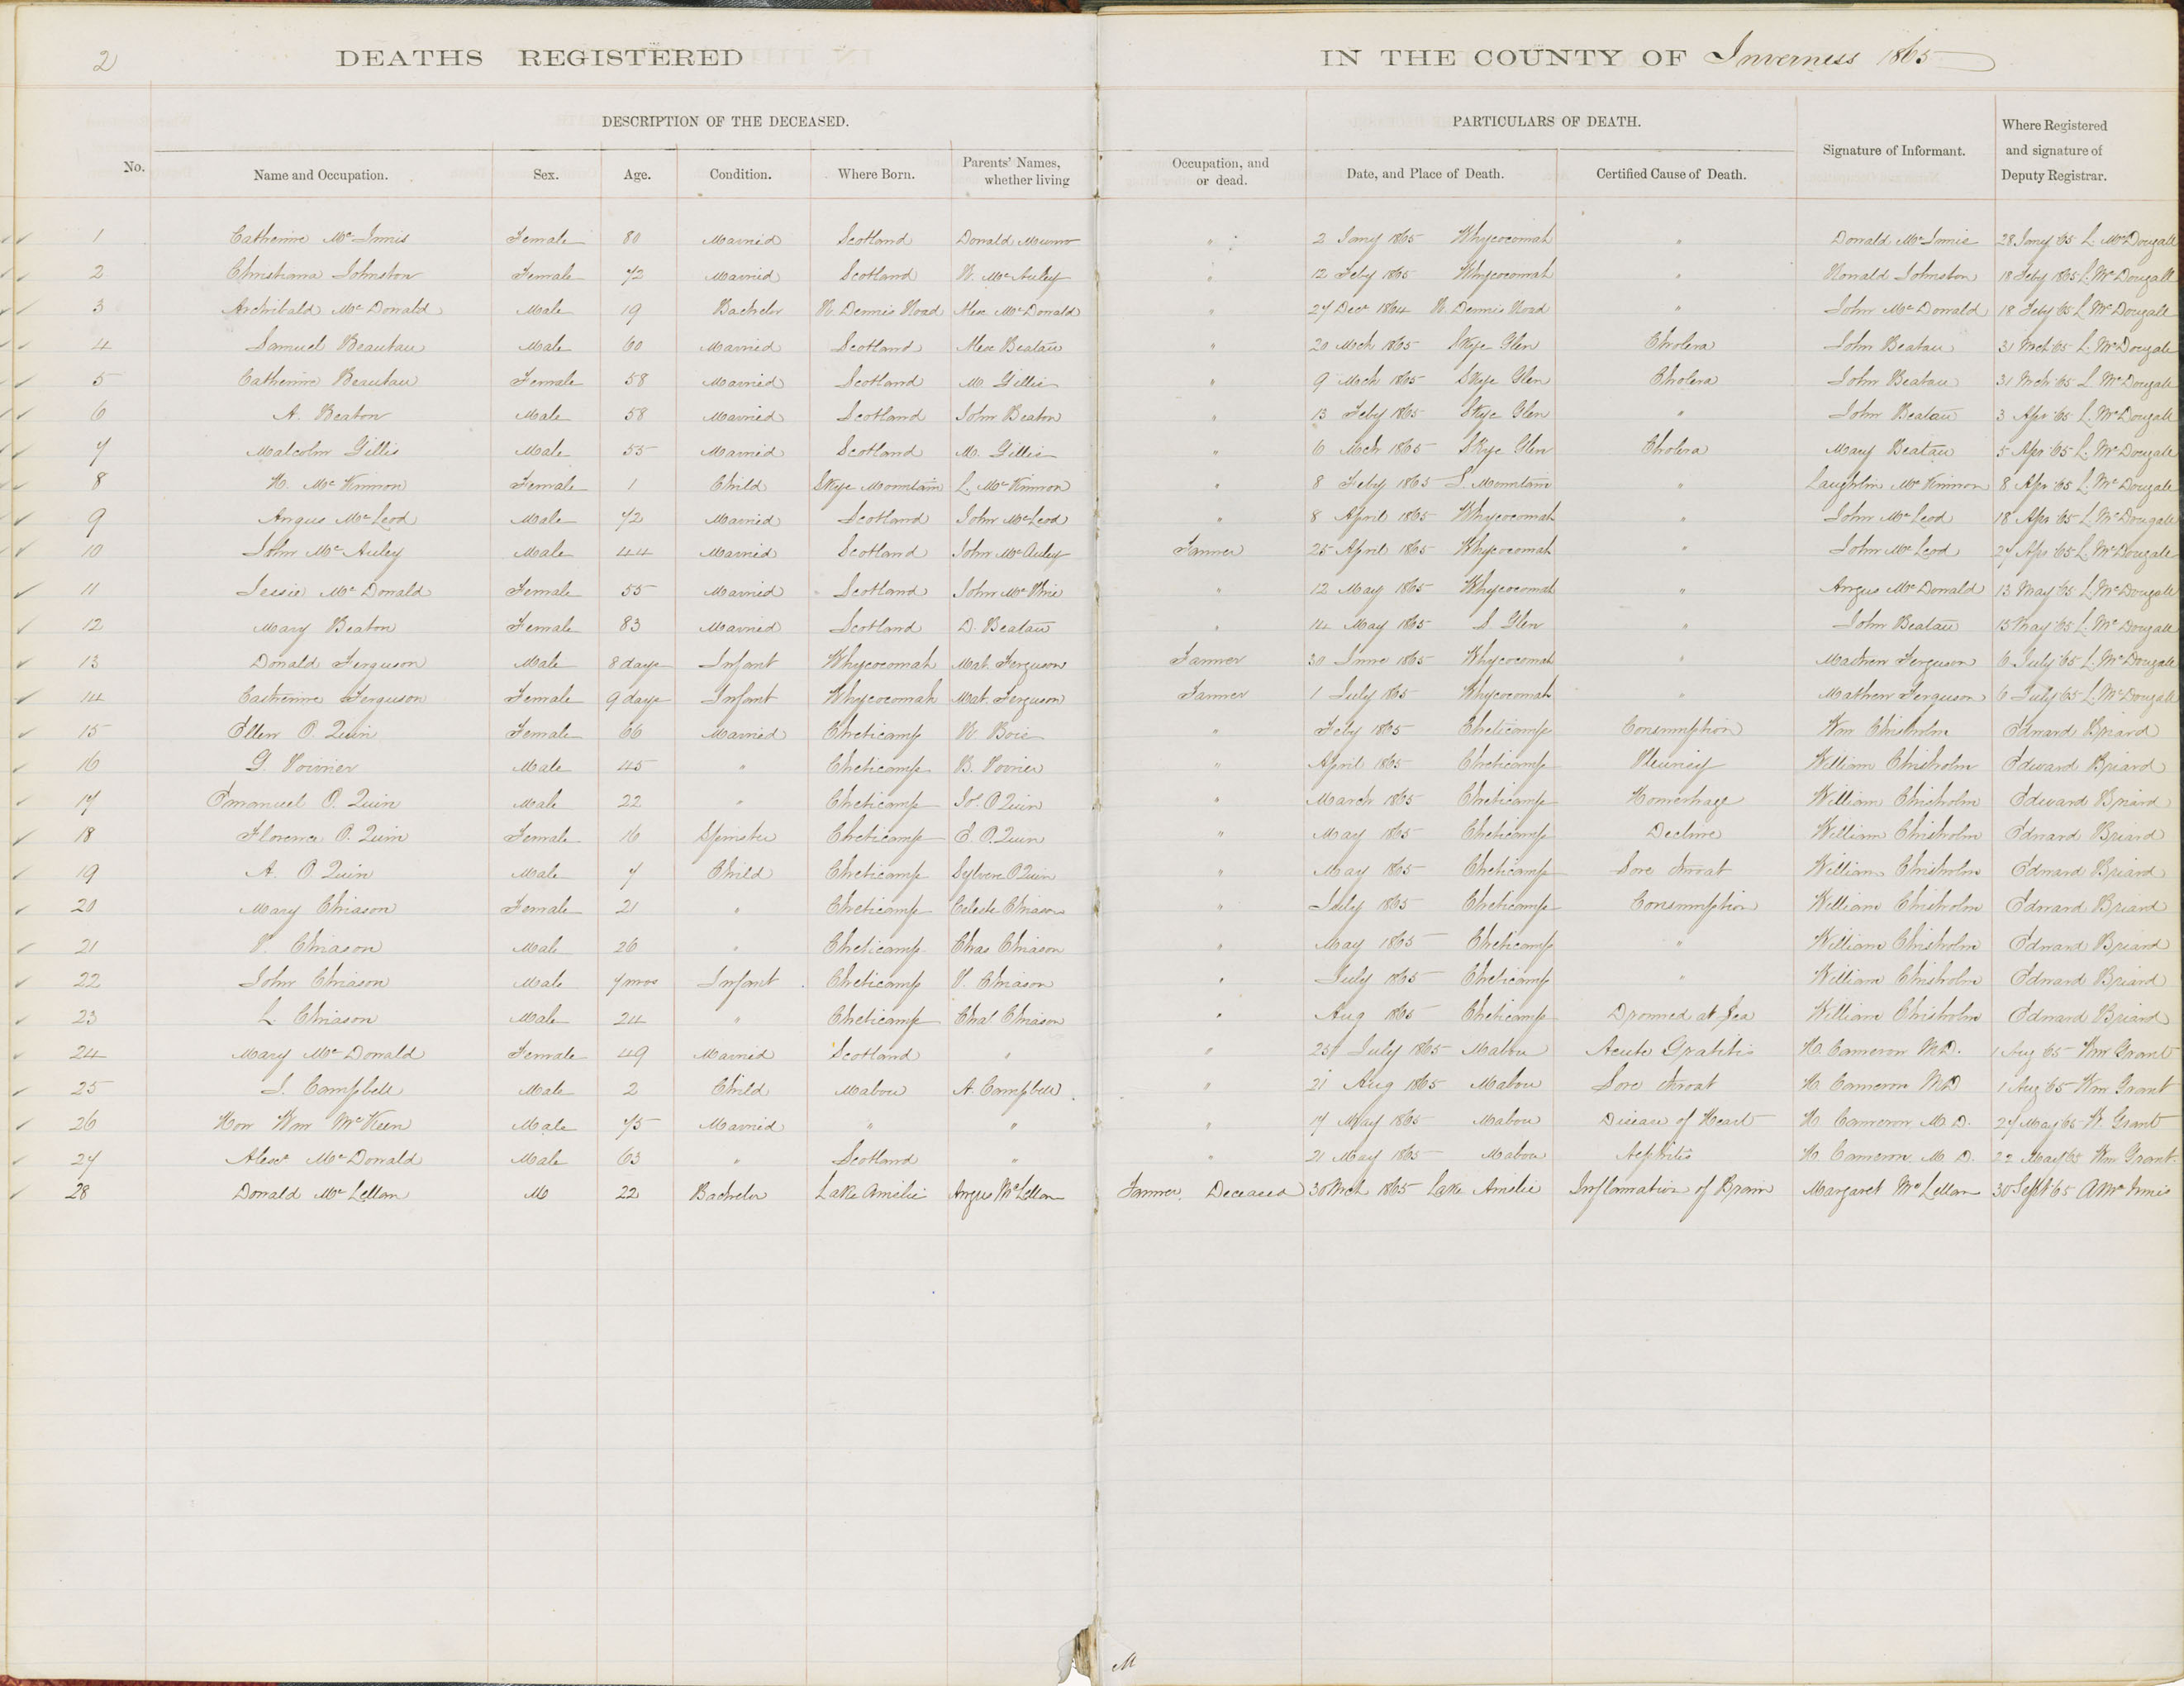 2 DEATHS REGISTERED IN THE COUNTY OF Inverness 1865
DESCRIPTION OF THE DECEASED. PARTICULARS OF DEATH.
No. Name and Occupation. Sex. Age. Condition. Where Born. Parents' Names, whether living Occupation, and or dead. Date, and Place of Death. Certified Cause of Death. Signature of Informant. Where Registered and signature of Deputy Registrar.
1 Catherine McInnis Female 80 Married Scotland Donald Munro " 2 Jany 1865 Whycocomah " Donald McInnis 28 Jany 65 L. McDougall
2 Christiana Johnston Female 72 Married Scotland N. McAuley " 12 Feby 1865 Whycocomah " Ronald Johnston 18 Feby 1865 L. McDougall
3 Archibald McDonald Male 19 Bachelor R. Dennis Road Alex McDonald " 27 Decr 1864 R. Dennis Road " John McDonald 18 Feby 65 L. McDougall
4 Samuel Beautau Male 60 Married Scotland Alex Beatau " 20 Mch 1865 Skye Glen Cholera John Beatau 31 Mch 65 L. McDougall
5 Catherine Beautau Female 58 Married Scotland M. Gillis " 9 Mch 1865 Skye Glen Cholera John Beatau 31 Mch 65 L. McDougall
6 A. Beaton Male 58 Married Scotland John Beaton " 13 Feby 1865 Skye Glen " John Beatau 3 Apr 65 L. McDougall
7 Malcolm Gillis Male 55 Married Scotland M. Gillis " 6 Mch 1865 Skye Glen Cholera Mary Beatau 5 Apr 65 L. McDougall
8 H. McKinnon Female 1 Child Skye Mountain L. McKinnon " 8 Feby 1865 S. Mountain " Laughlin McKinnon 8 Apr 65 L. McDougall
9 Angus McLeod Male 72 Married Scotland John McLeod " 8 April 1865 Whycocomah " John McLeod 18 Apr 65 L. McDougall
10 John McAuley Male 44 Married Scotland John McAuley Farmer 25 April 1865 Whycocomah " John McLeod 27 Apr 65 L. McDougall
11 Jessie McDonald Female 55 Married Scotland John " 12 May 1865 Whycocomah " Angus McDonald 13 May 65 L. McDougall
12 Mary Beaton Female 83 Married Scotland D. Beatau " 14 May 1865 S. Glen " John Beatau 15 May 65 L. McDougall
13 Donald Ferguson Male 8 days Infant Whycocomah Mat. Ferguson Farmer 30 June 1865 Whycocomah " Mathew Ferguson 6 July 65 L. McDougall
14 Catherine Ferguson Female 9 days Infant Whycocomah Mat. Ferguson Farmer 1 July 1865 Whycocomah " Mathew Ferguson 6 July 65 L. McDougall
15 Ellen O. Quin Female 66 Married Cheticamp Bois " Feby 1865 Cheticamp Consumption Wm Chisholm Edward Briard
16 G. Poirrier Male 45 " Cheticamp B. Poirrier " April 1865 Cheticamp Pleurisy William Chisholm Edward Briard
17 Emanuel O. Quin Male 22 " Cheticamp Jos. O Quin " March 1865 Cheticamp Homerhage William Chisholm Edward Briard
18 Florence O. Quin Female 16 Spinster Cheticamp E. O. Quin " May 1865 Cheticamp Decline William Chisholm Edward Briard
19 A. O. Quin Male 7 Child Cheticamp Sylvere O Quin " May 1865 Cheticamp Sore throat William Chisholm Edward Briard
20 Mary Chiason Female 21 " Cheticamp Celeste Chiason " July 1865 Cheticamp Consumption William Chisholm Edward Briard
21 P. Chiason Male 26 " Cheticamp Chas Chiason " May 1865 Cheticamp " William Chisholm Edward Briard
22 John Chiason Male 7 mos Infant Cheticamp P. Chiason " July 1865 Cheticamp " William Chisholm Edward Briard
23 L. Chiason Male 24 " Cheticamp Chas Chiason " Aug 1865 Cheticamp Drowned at Sea William Chisholm Edward Briard
24 Mary McDonald Female 49 Married Scotland " " 25 July 1865 Mabou Acute H. Cameron M.D. 1 Aug 65 Wm Grant
25 J. Campbell Male 2 Child Mabou A. Campbell " 21 Aug 1865 Mabou Sore throat H. Cameron MD 1 Aug 65 Wm Grant
26 Hon Wm McKeen Male 75 Married " " " 17 May 1865 Mabou Disease of Heart H. Cameron M.D. 27 May 65 W. Grant
27 Alexr McDonald Male 63 " Scotland " " 21 May 1865 Mabou H. Cameron M.D. 22 May 65 Wm Grant
28 Donald McLellan M 22 Bachelor Lake Amilie Angus McLellan Farmer, Deceased 30 Mch 1865 Lake Amilie Inflamation of Brain Margaret McLellan 30 Sept 65 A McInnis
M